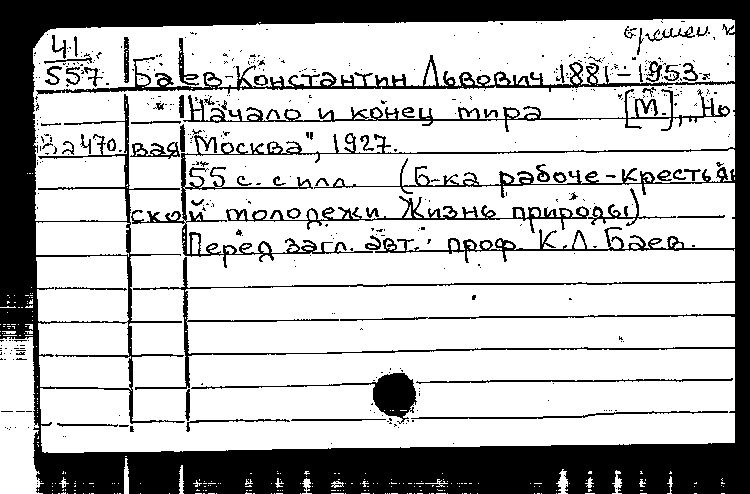 41
557. Баев, Константин Львович, 1881-1953.
Начало и конец мира [М.], „Но-
3а470. вая Москва", 1927.
55 с. с илл. (Б-ка рабоче-крестьян
ской молодежи. Жизнь природы)
Перед загл. авт.: проф. К.Л. Баев.